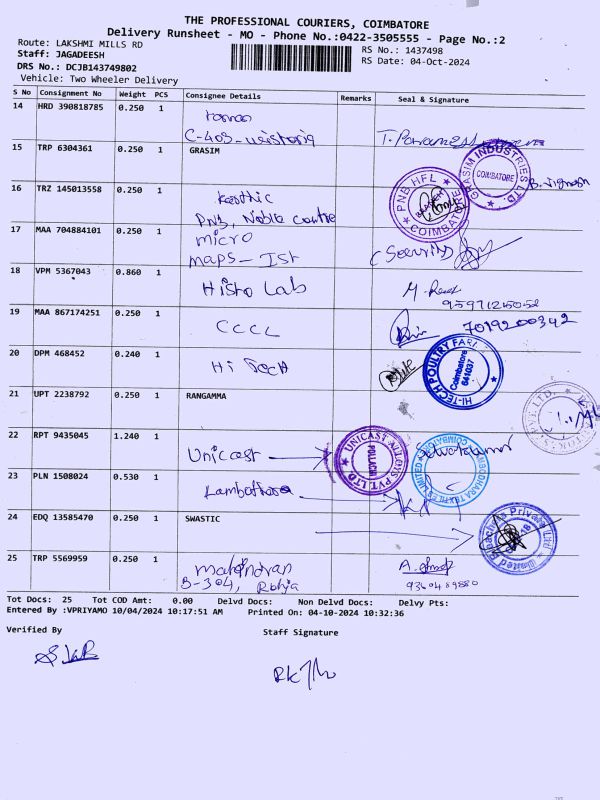 THE PROFESSIONAL COURIERS, COIMBATORE
Delivery Runsheet - MO - Phone No.:0422-3505555 - Page No.:2
Route: LAKSHMI MILLS RD
Staff: JAGADEESH
DRS No.: DCJB143749802
Vehicle: Two Wheeler Delivery
RS No.: 1437498
RS Date: 04-Oct-2024
S No Consignment No Weight PCS Consignee Details Remarks Seal & Signature
14 HRD 390818785 0.250 1
C-403
15 TRP 6304361 0.250 1 GRASIM
GRASIM INDUSTRIES LTD
COIMBATORE
16 TRZ 145013558 0.250 1
PNB, Noble centre
PNB HFL
COIMBATORE
17 MAA 704884101 0.250 1 micro
maps - Ist
Security
18 VPM 5367043 0.860 1
Histo Lab
19 MAA 867174251 0.250 1
CCCL
7019200342
20 DPM 468452 0.240 1
Hi Tech
HI-TECH POULTRY FARM
Coimbatore
641037
21 UPT 2238792 0.250 1 RANGAMMA
PVT. LTD.
22 RPT 9435045 1.240 1
Unicast
UNICAST ALLOYS PVT. LTD
POLLACHI
Selvakumar
23 PLN 1508024 0.530 1
TEXTILES LIMITED
COIMBATORE
24 EDQ 13585470 0.250 1 SWASTIC
Private Ltd
25 TRP 5569959 0.250 1
Mahindran
B-304,
Tot Docs: 25 Tot COD Amt: 0.00 Delvd Docs: Non Delvd Docs: Delvy Pts:
Entered By :VPRIYAMO 10/04/2024 10:17:51 AM Printed On: 04-10-2024 10:32:36
Verified By
Staff Signature